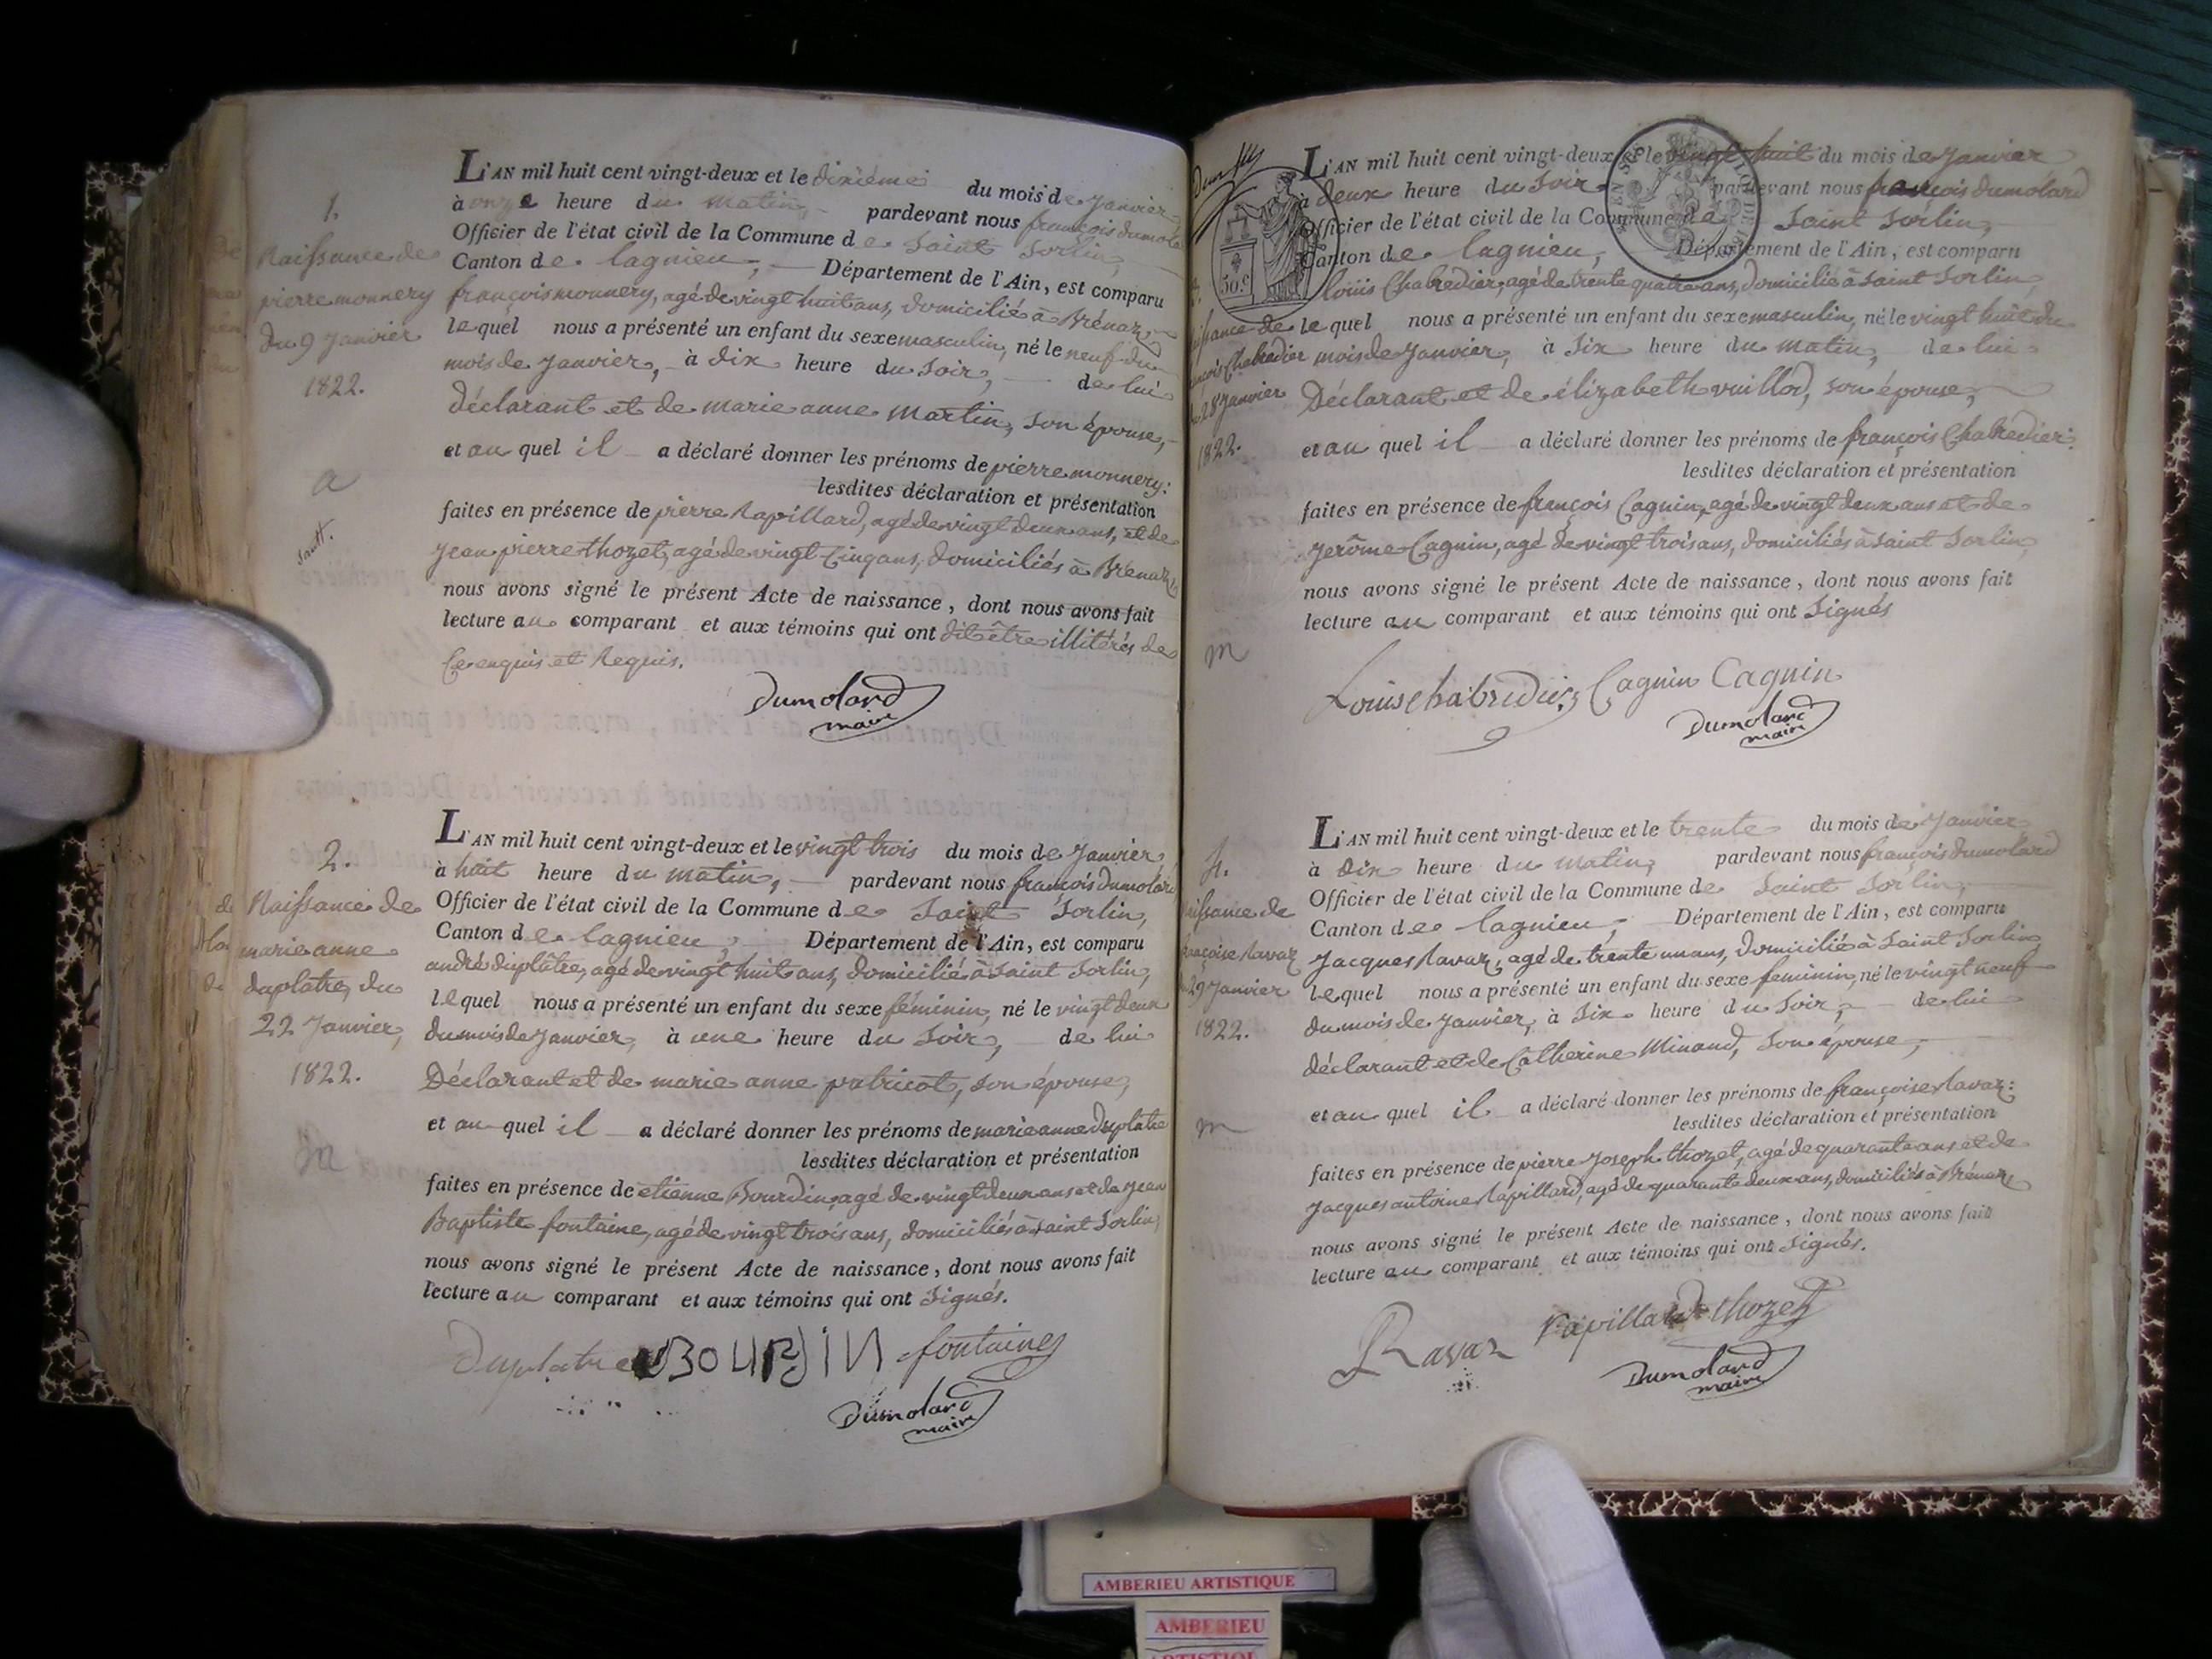 1.
Naissance de
pierre monnery
du 9 Janvier
1822.
a
L'AN mil huit cent vingt-deux et le dixième du mois de Janvier
à onze heure du matin, pardevant nous françois dumolard
Officier de l'état civil de la Commune de Saint Sorlin,
Canton de lagnieu, Département de l'Ain, est comparu
françois monnery, agé de vingt huit ans, domicilié à Brénaz,
lequel nous a présenté un enfant du sexe masculin, né le neuf du
mois de Janvier, à dix heure du Soir, de lui
Déclarant et de marie anne martin, son épouse,
et au quel il a déclaré donner les prénoms de pierre monnery:
lesdites déclaration et présentation
faites en présence de pierre Rapillard, agé de vingt deux ans, et de
Jean pierre thozet, agé de vingt Cinq ans, domiciliés à Brénaz,
nous avons signé le présent Acte de naissance, dont nous avons fait
lecture au comparant et aux témoins qui ont dit être illitérés de
Ce enquis et Requis.
Dumolard
maire
2.
Naissance de
marie anne
duplatre, du
22 Janvier,
1822.
L'AN mil huit cent vingt-deux et le vingt trois du mois de Janvier,
à huit heure du matin, pardevant nous françois dumolard
Officier de l'état civil de la Commune de Saint Sorlin,
Canton de lagnieu, Département de l'Ain, est comparu
andré duplâtre, agé de vingt huit ans, domicilié à Saint Sorlin,
lequel nous a présenté un enfant du sexe féminin, né le vingt deux
du mois de Janvier, à une heure du Soir, de lui
Déclarant et de marie anne patricot, son épouse,
et au quel il a déclaré donner les prénoms de marie anne Duplatre
lesdites déclaration et présentation
faites en présence de etienne Bourdin, agé de vingt deux ans et de Jean
Baptiste fontaine, agé de vingt trois ans, domiciliés à Saint Sorlin,
nous avons signé le présent Acte de naissance, dont nous avons fait
lecture au comparant et aux témoins qui ont Signés.
Duplatre BOURDIN fontaine
Dumolard
maire
50 c
françois Chabredier
28 Janvier
1822.
m
L'AN mil huit cent vingt-deux et le vingt huit du mois de Janvier
à deux heure du Soir pardevant nous françois dumolard
Officier de l'état civil de la Commune de Saint Sorlin,
Canton de lagnieu, Département de l'Ain, est comparu
louis Chabredier, agé de trente quatre ans, domicilié à Saint Sorlin,
lequel nous a présenté un enfant du sexe masculin, né le vingt huit du
mois de Janvier, à Six heure du matin, de lui
Déclarant et de élizabeth vuillod, son épouse,
et au quel il a déclaré donner les prénoms de françois Chabredier:
lesdites déclaration et présentation
faites en présence de françois Cagnin, agé de vingt deux ans et de
Jerôme Cagnin, agé de vingt trois ans, domiciliés à Saint Sorlin,
nous avons signé le présent Acte de naissance, dont nous avons fait
lecture au comparant et aux témoins qui ont Signés
Louis chabredier Cagnin Cagnin
Dumolard
maire
4.
Naissance de
françoise Ravaz
29 Janvier
1822.
m
L'AN mil huit cent vingt-deux et le trente du mois de Janvier
à Dix heure du matin, pardevant nous françois dumolard
Officier de l'état civil de la Commune de Saint Sorlin,
Canton de lagnieu, Département de l'Ain, est comparu
Jacques Ravaz, agé de trente un ans, domicilié à Saint Sorlin,
lequel nous a présenté un enfant du sexe feminin, né le vingt neuf
du mois de Janvier, à Six heure du Soir, de lui
déclarant et de Catherine Minand, son épouse,
et au quel il a déclaré donner les prénoms de françoise Ravaz:
lesdites déclaration et présentation
faites en présence de pierre Joseph thozet, agé de quarante ans et de
Jacques antoine Rapillard, agé de quarante deux ans, domiciliés à Brénaz,
nous avons signé le présent Acte de naissance, dont nous avons fait
lecture au comparant et aux témoins qui ont Signés.
Ravaz Rapillard thozet
Dumolard
maire
AMBERIEU ARTISTIQUE
AMBERIEU
ARTISTIQUE